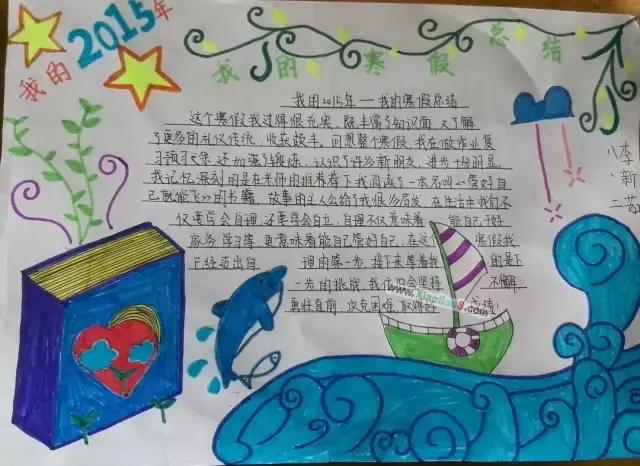 我的2015年
我的寒假总结
我的2015年——我的寒假总结
这个寒假我过得很充实，既丰富了知识面，又了解
了更多的礼仪传统，收获颇丰。回想整个寒假，我在做作业复
习预习之余，还加强了锻炼，认识了许多新朋友，进步十分明显
我记忆深刻的是在老师的推荐下我阅读了一本名叫《管好自
己就能飞》的书籍，故事的主人公给了我很多启发，在生活中我们不
仅要学会自理，还要学会自立，自理不仅意味着 能自己干好
家务 学习等，更意味着能自己管好自己，在这个 寒假我
已经迈出自 理的第一步，接下来等着我 的是下
一步的挑战，我依旧会坚持 不懈
勇往直前，攻克困难，取得好 成绩！
八·二 李新艺
www.XiaoBao8.com